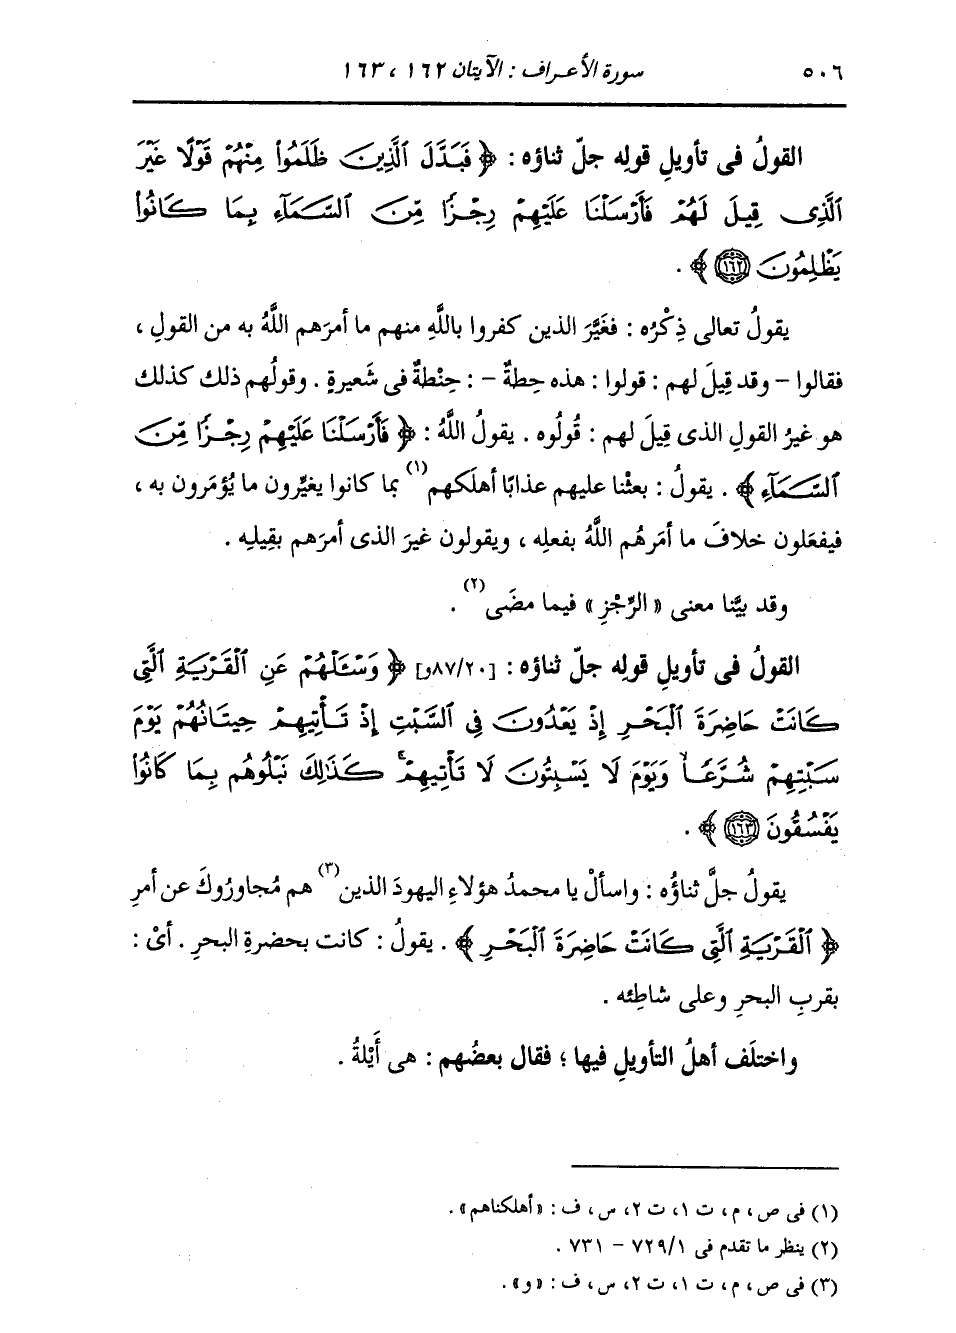 ٥٠٦ سورة الأعراف : الآيتان ١٦٢ ، ١٦٣
القولُ فى تأويلِ قولِه جلّ ثناؤه : ﴿ فَبَدَّلَ ٱلَّذِينَ ظَلَمُوا۟ مِنْهُمْ قَوْلًا غَيْرَ
ٱلَّذِى قِيلَ لَهُمْ فَأَرْسَلْنَا عَلَيْهِمْ رِجْزًا مِّنَ ٱلسَّمَآءِ بِمَا كَانُوا۟
يَظْلِمُونَ ١٦٢ ﴾ .
يقولُ تعالى ذِكْرُه : فغَيَّرَ الذين كفروا باللَّهِ منهم ما أمرَهم اللَّهُ به من القولِ ،
فقالوا – وقد قِيلَ لهم : قولوا : هذه حِطةٌ – : حِنْطةٌ فى شَعيرةٍ . وقولُهم ذلك كذلك
هو غيرُ القولِ الذى قِيلَ لهم : قُولُوه . يقولُ اللَّهُ : ﴿ فَأَرْسَلْنَا عَلَيْهِمْ رِجْزًا مِّنَ
ٱلسَّمَآءِ ﴾ . يقولُ : بعثْنا عليهم عذابًا أهلَكهم(١) بما كانوا يغيِّرون ما يُؤمَرون به ،
فيفعَلون خلافَ ما أمَرهُم اللَّهُ بفعلِه ، ويقولون غيرَ الذى أمرَهم بقِيلِه .
وقد بيَّنا معنى « الرِّجْزِ » فيما مضَى(٢) .
القولُ فى تأويلِ قولِه جلّ ثناؤه : [٨٧/٢٠و] ﴿ وَسْـَٔلْهُمْ عَنِ ٱلْقَرْيَةِ ٱلَّتِى
كَانَتْ حَاضِرَةَ ٱلْبَحْرِ إِذْ يَعْدُونَ فِى ٱلسَّبْتِ إِذْ تَأْتِيهِمْ حِيتَانُهُمْ يَوْمَ
سَبْتِهِمْ شُرَّعًا وَيَوْمَ لَا يَسْبِتُونَ لَا تَأْتِيهِمْ ۚ كَذَٰلِكَ نَبْلُوهُم بِمَا كَانُوا۟
يَفْسُقُونَ ١٦٣ ﴾ .
يقولُ جلَّ ثناؤُه : واسألْ يا محمدُ هؤلاءِ اليهودَ الذين(٣) هم مُجاورُوكَ عن أمرِ
﴿ ٱلْقَرْيَةِ ٱلَّتِى كَانَتْ حَاضِرَةَ ٱلْبَحْرِ ﴾ . يقولُ : كانت بحضرةِ البحرِ . أىْ :
بقربِ البحرِ وعلى شاطِئه .
واختلَف أهلُ التأويلِ فيها ؛ فقال بعضُهم : هى أَيْلةُ .
(١) فى ص ، م ، ت ١، ت ٢، س ، ف : « أهلكناهم » .
(٢) ينظر ما تقدم فى ٧٢٩/١ – ٧٣١ .
(٣) فى ص ، م ، ت ١، ت ٢، س ، ف : « و » .